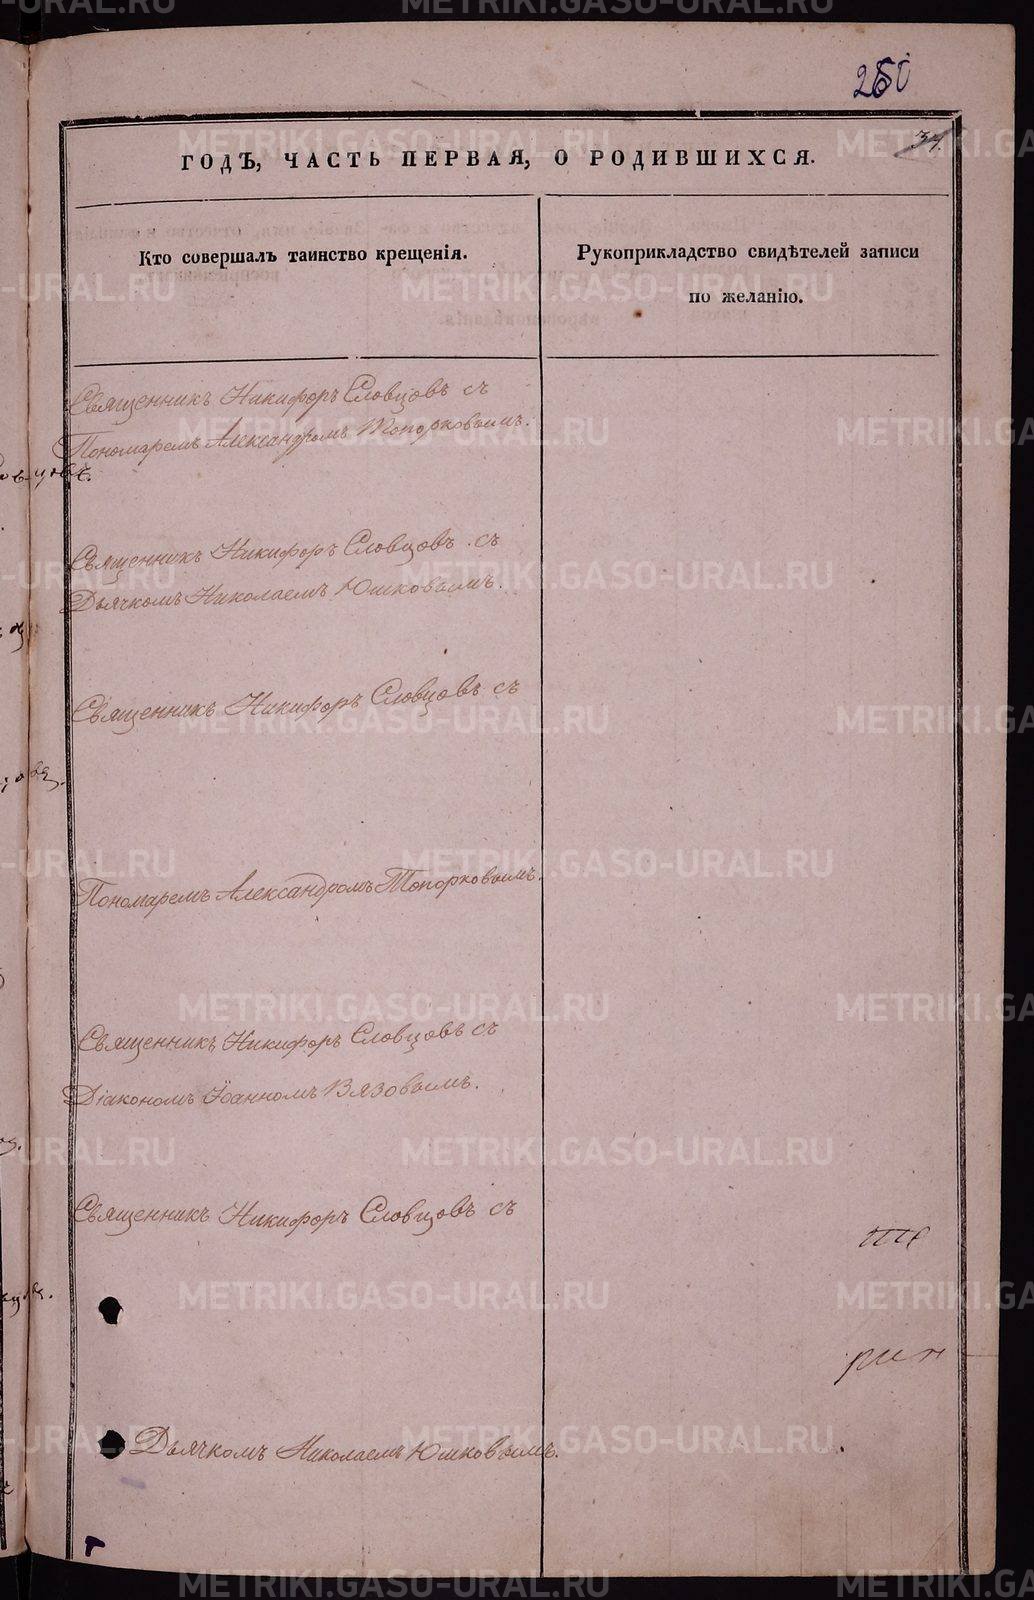 250
34.
ГОДЪ, ЧАСТЬ ПЕРВАЯ, О РОДИВШИХСЯ.
Кто совершалъ таинство крещенія.
Рукоприкладство свидѣтелей записи
по желанію.
Священникъ Никифоръ Словцовъ съ
Пономаремъ Александромъ Топорковымъ.
Священникъ Никифоръ Словцовъ съ
Дьячкомъ Николаемъ Юшковымъ.
Священникъ Никифоръ Словцовъ съ
Пономаремъ Александромъ Топорковымъ.
Священникъ Никифоръ Словцовъ съ
Діакономъ Іоанномъ Вязовымъ.
Священникъ Никифоръ Словцовъ съ
Дьячкомъ Николаемъ Юшковымъ.
METRIKI.GASO-URAL.RU